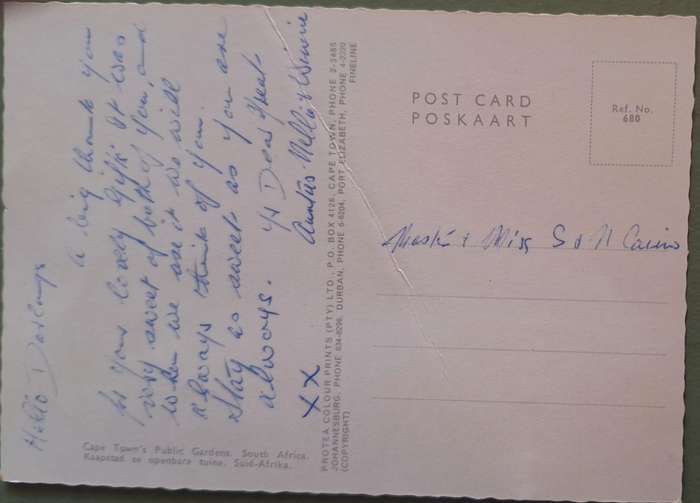 Hello Darlings
a big thank you
for your lovely gift. It was
very sweet of both of you, and
when we use it we will
always think of you.
Stay as sweet as you are
always. Yr Dear Aunts
Aunties Nellie & Winnie
XX
Cape Town's Public Gardens. South Africa.
Kaapstad se openbare tuine. Suid-Afrika.
PROTEA COLOUR PRINTS (PTY) LTD., P.O. BOX 4126, CAPE TOWN, PHONE 2-3485
JOHANNESBURG, PHONE 834-8296, DURBAN, PHONE 6-6204, PORT ELIZABETH, PHONE 4-2220
(COPYRIGHT) FINELINE
POST CARD
POSKAART
Ref. No.
680
& Miss S & N